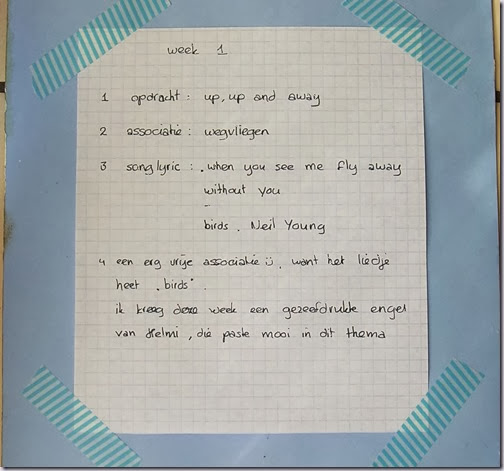 week 1
1 opdracht : up, up and away
2 associatie : wegvliegen
3 songlyric : . when you see me fly away
without you
birds . Neil Young
4 een erg vrije associatie ü . want het liedje
heet . birds" .
ik kreeg deze week een gezeefdrukte engel
van Helmi , die paste mooi in dit thema